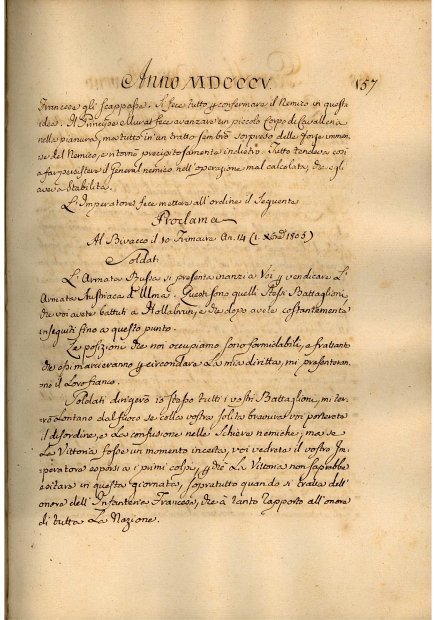 Anno MDCCCV. 157
Francese gli scappasse. Si fece tutto p confermare il Nemico in questa
idea. Il Principe Murat fece avanzare un piccolo Corpo di Cavalleria
nella pianura, ma tutto in un tratto sembrò sorpreso delle forze immen-
se del Nemico, e ritornò precipitosamente indietro. Tutto tendeva così
a far persistere il General nemico nell'operazione mal calcolata, che egli
aveva Stabilita.
L'Imperatore fece mettere all'ordine il Seguente
Proclama
Al Bivacco il 10 Frimaire An. 14 (1. Xbre 1805)
Soldati
L'Armata Russa si presenta inanzi a Voi p vendicare L'
Armata Austriaca d'Ulma. Questi sono quelli Stessi Battaglioni,
che voi avete battuti a Hollabrun, e che dopo avete costantemente
inseguiti fino a questo punto.
Le posizioni che noi occupiamo sono formidabili, e frattanto
che essi marceranno p circondare La mia diritta, mi presenteran-
no il Loro fianco.
Soldati dirigerò io stesso tutti i vostri Battaglioni, mi ter-
rò Lontano dal fuoco se colla vostra solita bravura voi porterete
il disordine, e La confusione nelle Schiere nemiche; ma se
La Vittoria fosse un momento incerta, voi vedrete il vostro Im-
peratore esporsi a i primi colpi, p che La Vittoria non saprebbe
esitare in questa giornata, sopratutto quando si tratta dell'
onore dell'Infanteria Francese, che à tanto rapporto all'onore
di tutta La Nazione.